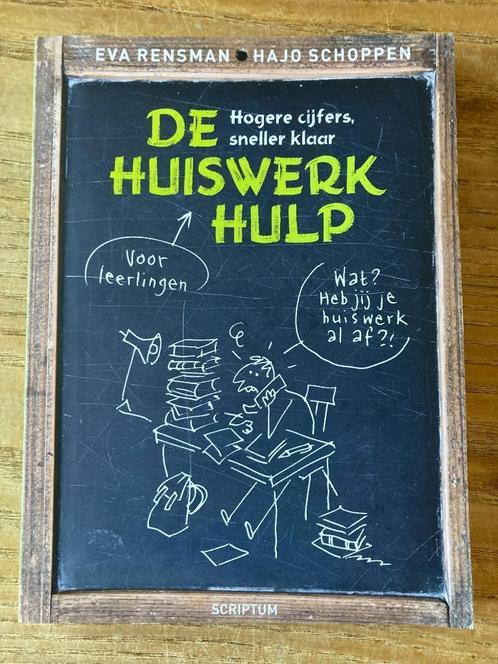 EVA RENSMAN • HAJO SCHOPPEN
DE
Hogere cijfers,
sneller klaar
HUISWERK
HULP
Voor
leerlingen
Wat?
Heb jij je
huiswerk
al af?!
SCRIPTUM